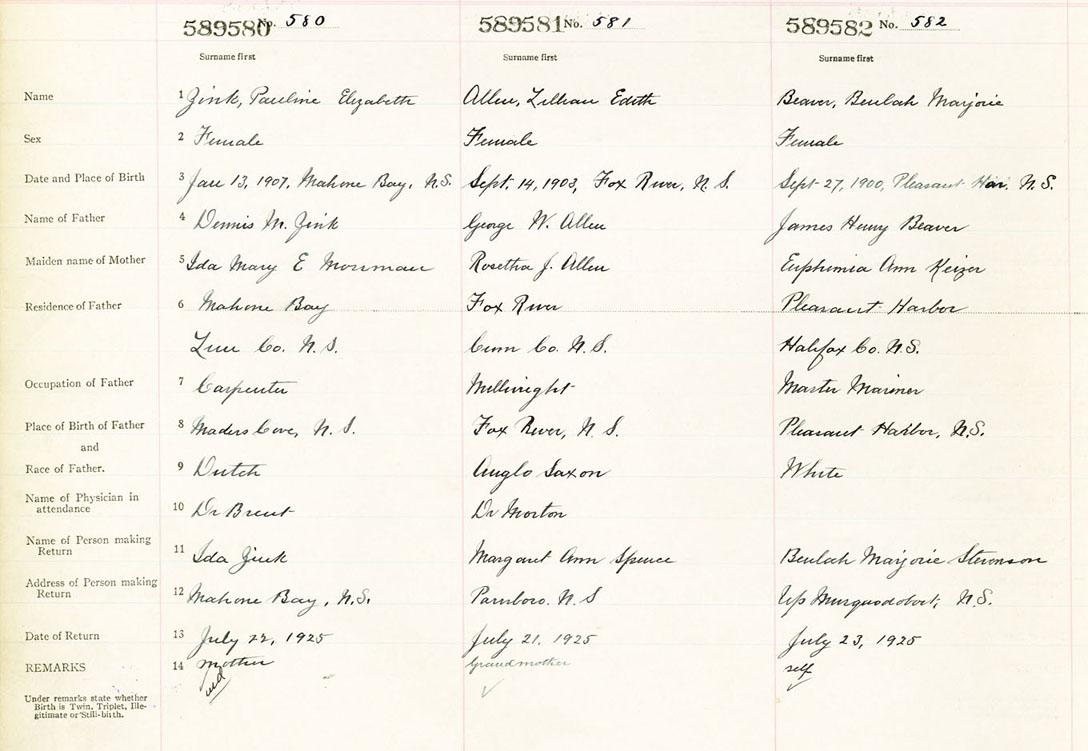 589580 No. 580 589581 No. 581 589582 No. 582
Surname first Surname first Surname first
Name 1 Zink, Pauline Elizabeth Allen, Lillian Edith Beaver, Beulah Marjorie
Sex 2 Female Female Female
Date and Place of Birth 3 Jan 13, 1907, Mahone Bay, N.S. Sept. 14, 1903, Fox River, N.S. Sept 27, 1900, Pleasant Har. N.S.
Name of Father 4 Dennis M. Zink George W. Allen James Henry Beaver
Maiden name of Mother 5 Ida Mary E Rosetha J. Allen Euphimia Ann Keizer
Residence of Father 6 Mahone Bay Fox River Pleasant Harbor
Lun Co. N.S. Cum Co. N.S. Halifax Co. N.S.
Occupation of Father 7 Carpenter Millwright Master Mariner
Place of Birth of Father 8 Maders Cove, N.S. Fox River, N.S. Pleasant Harbor, N.S.
and
Race of Father. 9 Dutch Anglo Saxon White
Name of Physician in
attendance 10 Dr Dr Morton
Name of Person making
Return 11 Ida Zink Margaret Ann Spence Beulah Marjorie Stevenson
Address of Person making
Return 12 Mahone Bay, N.S. Parrsboro. N.S Up Musquodoboit, N.S.
Date of Return 13 July 22, 1925 July 21. 1925 July 23, 1925
REMARKS 14 Mother Grandmother self
Under remarks state whether
Birth is Twin, Triplet, Ille-
gitimate or Still-birth.